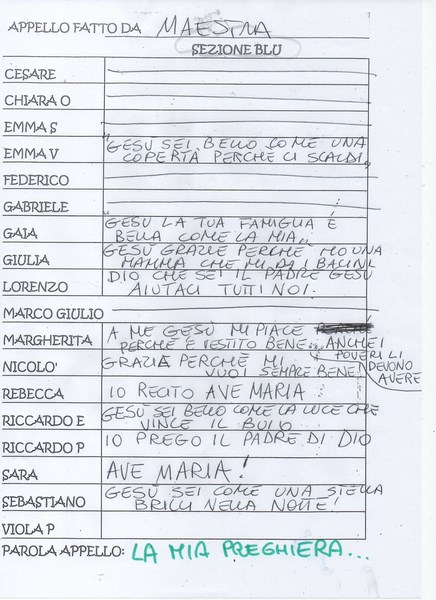 APPELLO FATTO DA MAESTRA
SEZIONE BLU
CESARE
CHIARA O
EMMA S
EMMA V "GESÙ SEI BELLO COME UNA
COPERTA PERCHÈ CI SCALDI"
FEDERICO
GABRIELE
GAIA GESÙ LA TUA FAMIGLIA È
BELLA COME LA MIA
GIULIA GESÙ GRAZIE PERCHÈ HO UNA
MAMMA CHE MI DA I BACINI
LORENZO DIO CHE SEI IL PADRE GESÙ
AIUTACI TUTTI NOI.
MARCO GIULIO
MARGHERITA A ME GESÙ MI PIACE
PERCHÈ È VESTITO BENE... ANCHE I
POVERI LI
DEVONO
AVERE
NICOLO' GRAZIE PERCHÈ MI
VUOI SEMPRE BENE!
REBECCA IO RECITO AVE MARIA
RICCARDO E GESÙ SEI BELLO COME LA LUCE CHE
VINCE IL BUIO
RICCARDO P IO PREGO IL PADRE DI DIO
SARA AVE MARIA!
SEBASTIANO GESÙ SEI COME UNA STELLA
BRILLI NELLA NOTTE!
VIOLA P
PAROLA APPELLO: LA MIA PREGHIERA...